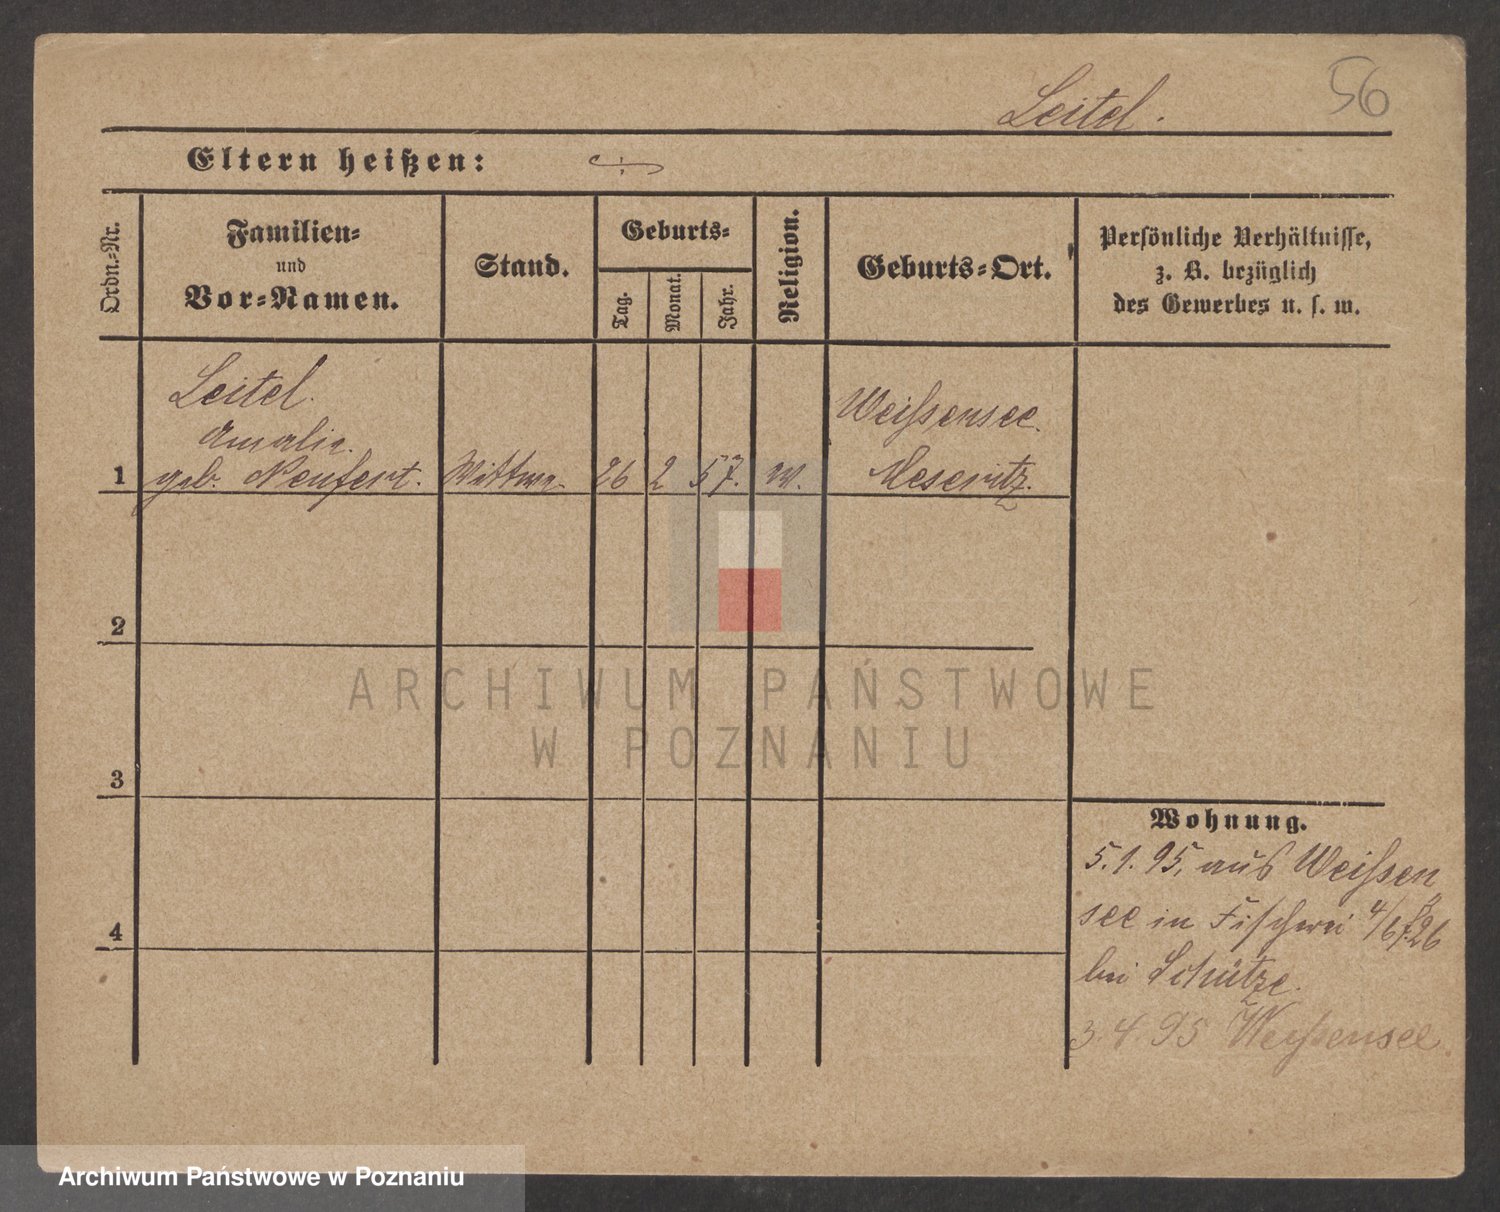 56
Leitel.
Eltern heißen:
Ordn.-Nr.
Familien-
und
Vor-Namen.
Stand.
Geburts-
Tag.
Monat.
Jahr.
Religion.
Geburts-Ort.
Persönliche Verhältnisse,
z. B. bezüglich
des Gewerbes u. s. w.
Leitel.
Amalie.
1 geb. Neufert. Wittwe 26 2 57.
Weißensee.
Meseritz.
2
ARCHIWUM PAŃSTWOWE
W POZNANIU
3
4
Wohnung.
5.1.95, aus Weißen
see in Fischerei 4/6
bei Schütze.
3.4.95 Weißensee.
Archiwum Państwowe w Poznaniu